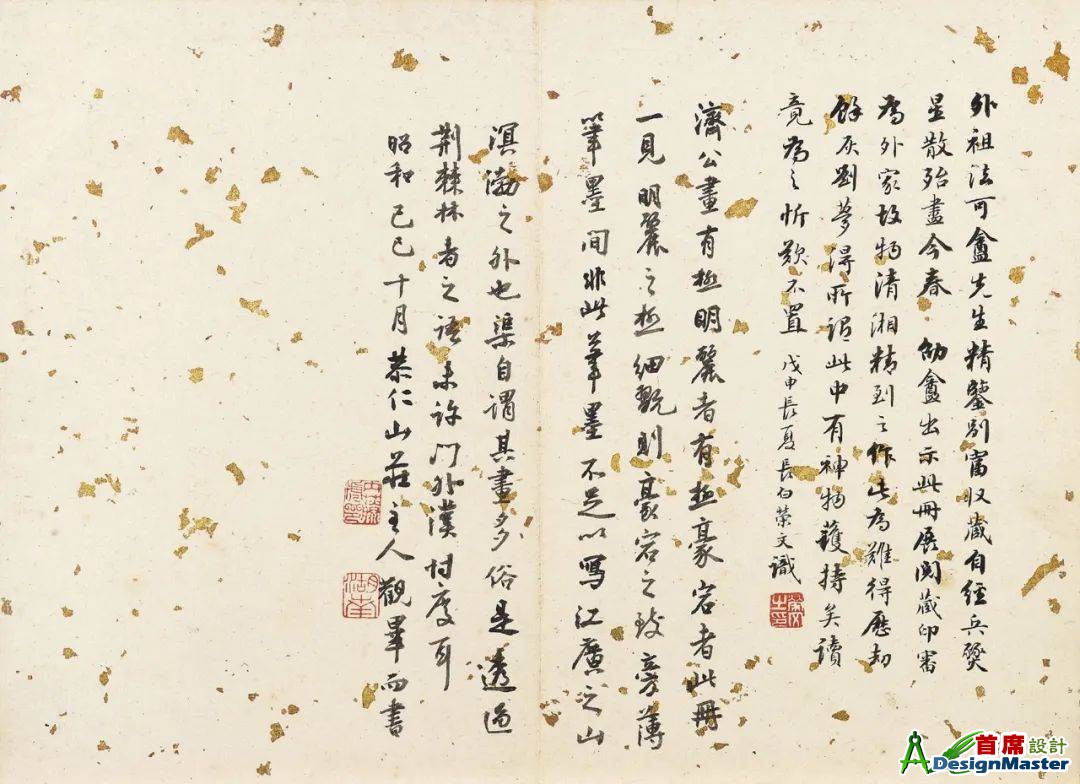 外祖法可盦先生精鑒别富收藏自經兵燹
星散殆盡今春 幼盦出示此冊展閱藏印審
為外家故物清湘精到之作此為難得歷劫
餘灰劉夢得所謂此中有神物護持矣讀
竟為之忻歎不置 戊申長夏長白榮文識
濟公畫有極明麗者有極豪宕者此冊
一見明麗之極細翫則豪宕之致旁薄
筆墨間非此筆墨不足以寫江廣之山
溟渤之外也渠自謂其畫多俗是透過
荆棘林者之語未許門外漢忖度耳
昭和己巳十月恭仁山莊主人觀畢而書
首席設計
DesignMaster